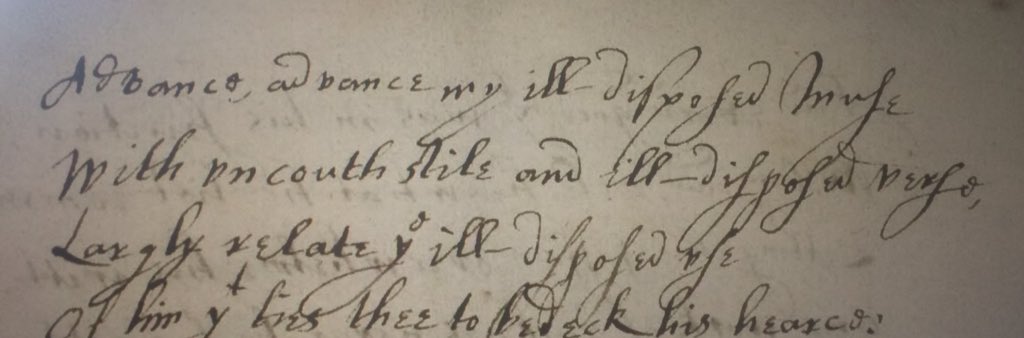 Advance, advance my ill-disposed Muse
With vncouth stile and ill-disposed verse,
Largly relate yᵉ ill-disposed vse
Of him yᵗ ties thee to bedeck his hearce: